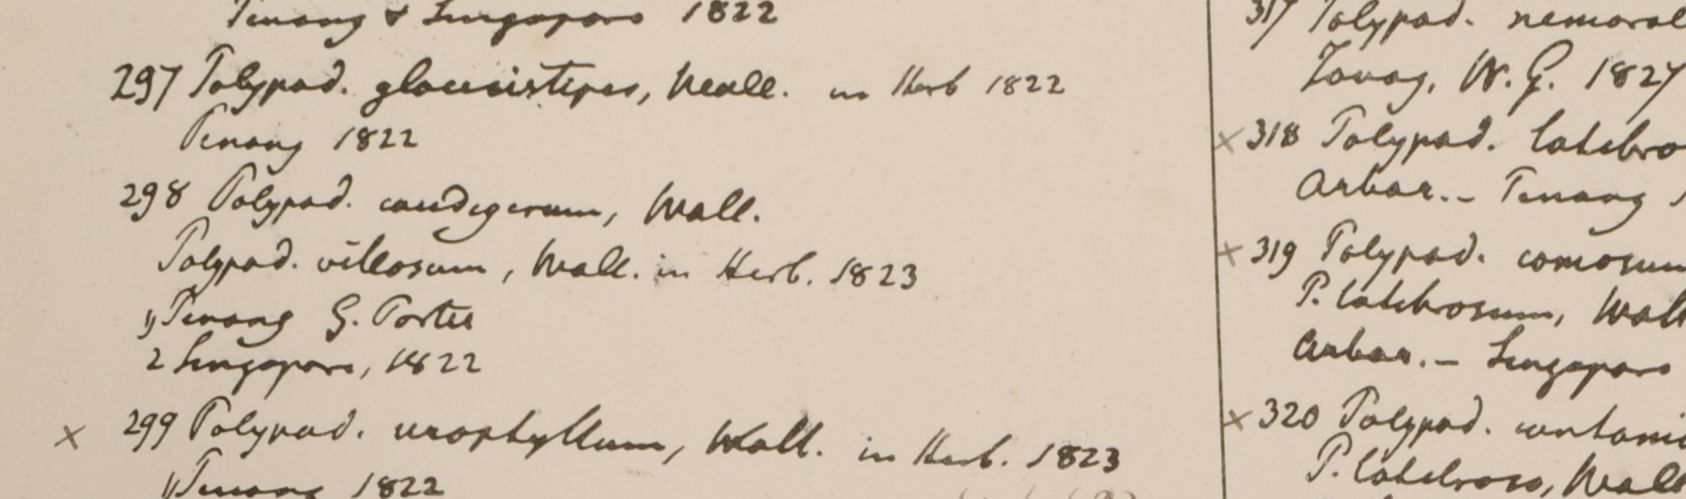 Penang & Singapore 1822
297 Polypod. glaucistipes, Wall. in Herb 1822
Penang 1822
298 Polypod. caudigerum, Wall.
Polypod. villosum, Wall. in Herb. 1823
1) Penang G. Porter
2 Singapore, 1822
x 299 Polypod. urophyllum, Wall. in Herb. 1823
1) Penang 1822
317 Polypod. nemoral
Tavoy, W. G. 1827
x 318 Polypod. latebro
Arbor.- Penang
x 319 Polypod. comosum
P. latebrosum, Wall
Arbor.- Singapore
x 320 Polypod. contami
P. latebroso, Wall